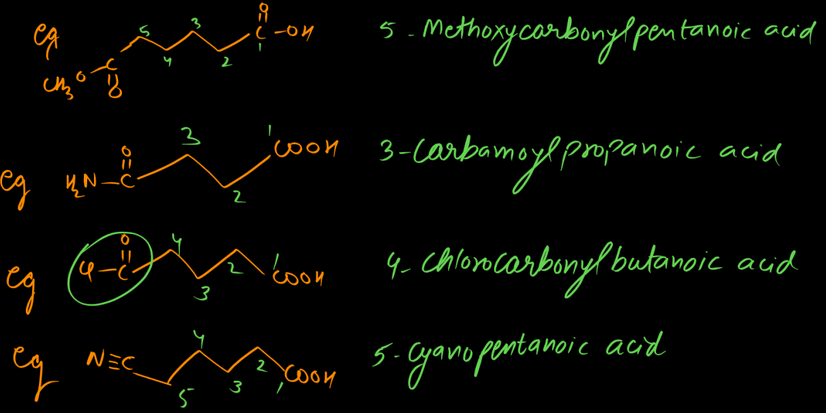 eg CH3 O C O 5 4 3 2 1 O C -OH 5-Methoxycarbonylpentanoic acid
eg H2N-C O 3 2 1 COOH 3-Carbamoylpropanoic acid
eg Cl-C O 4 3 2 1 COOH 4-Chlorocarbonylbutanoic acid
eg N≡C 5 4 3 2 1 COOH 5-Cyanopentanoic acid